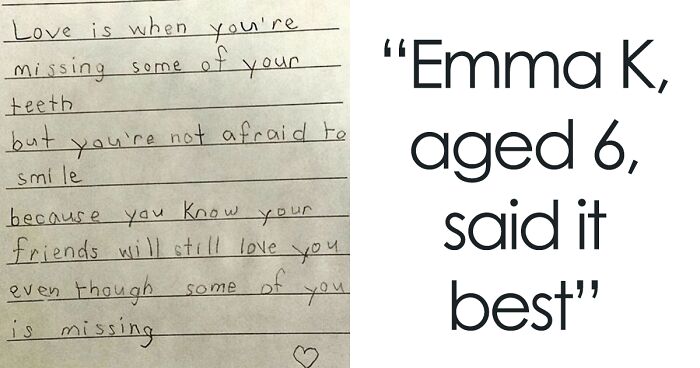 Love is when you're
missing some of your
teeth
but you're not afraid to
smile
because you know your
friends will still love you
even though some of you
is missing
“Emma K,
aged 6,
said it
best”